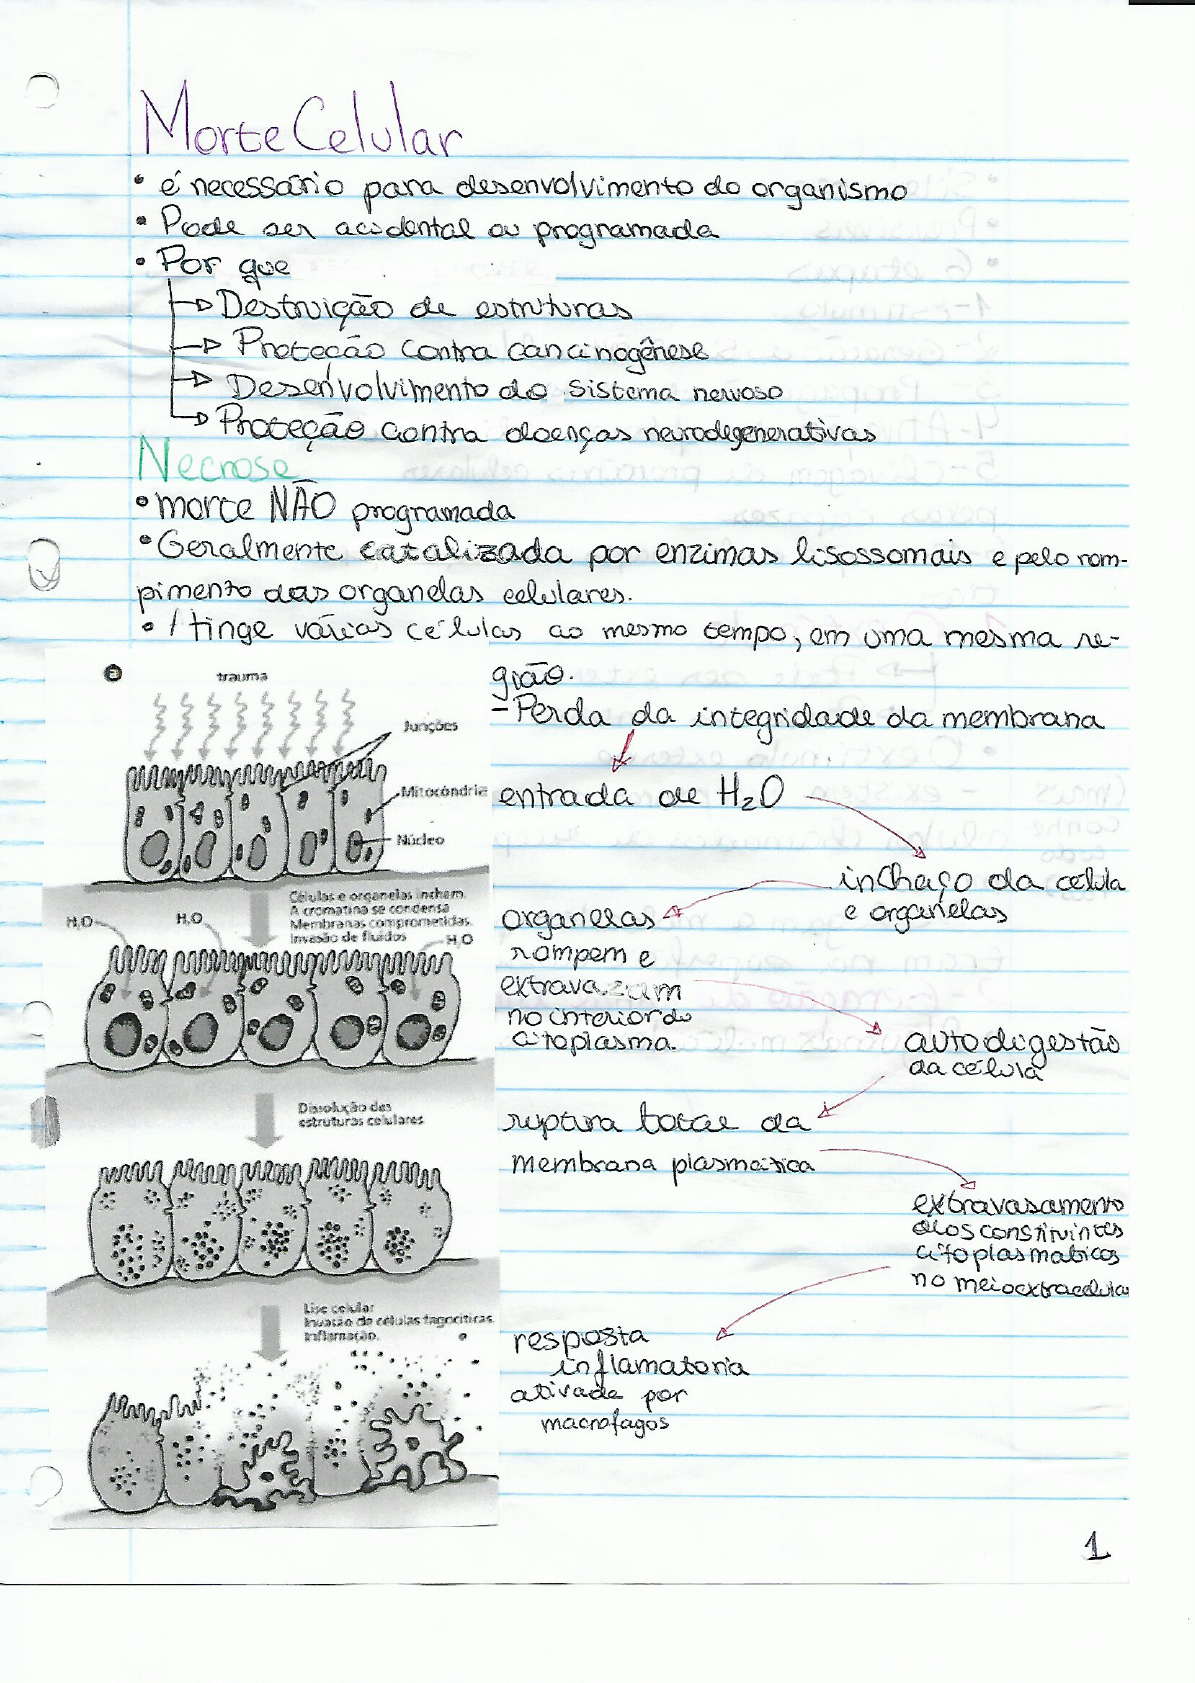 Morte Celular
• é necessário para desenvolvimento do organismo
• Pode ser acidental ou programada
• Por que
Destruição de estruturas
Proteção contra cancinogênese
Desenvolvimento do sistema nervoso
Proteção contra doenças neurodegenerativas
Necrose
• morte NÃO programada
• Geralmente catalizada por enzimas lisossomais e pelo rom-
pimento das organelas celulares.
• Atinge várias células ao mesmo tempo, em uma mesma re-
gião.
- Perda da integridade da membrana
entrada de H₂O
inchaço da célula
e organelas
organelas
rompem e
extravazam
no interior do
citoplasma.
autodigestão
da célula
ruptura total da
membrana plasmática
extravasamento
dos constituintes
citoplasmáticos
no meio extracelular
resposta
inflamatoria
ativada por
macrofagos
e
trauma
Junções
Mitocôndria
Núcleo
Células e organelas incham.
A cromatina se condensa
Membranas comprometidas.
Invasão de fluidos
H₂O
H₂O
H₂O
Dissolução das
estruturas celulares
Lise celular
Invasão de células fagocíticas.
Inflamação.
1